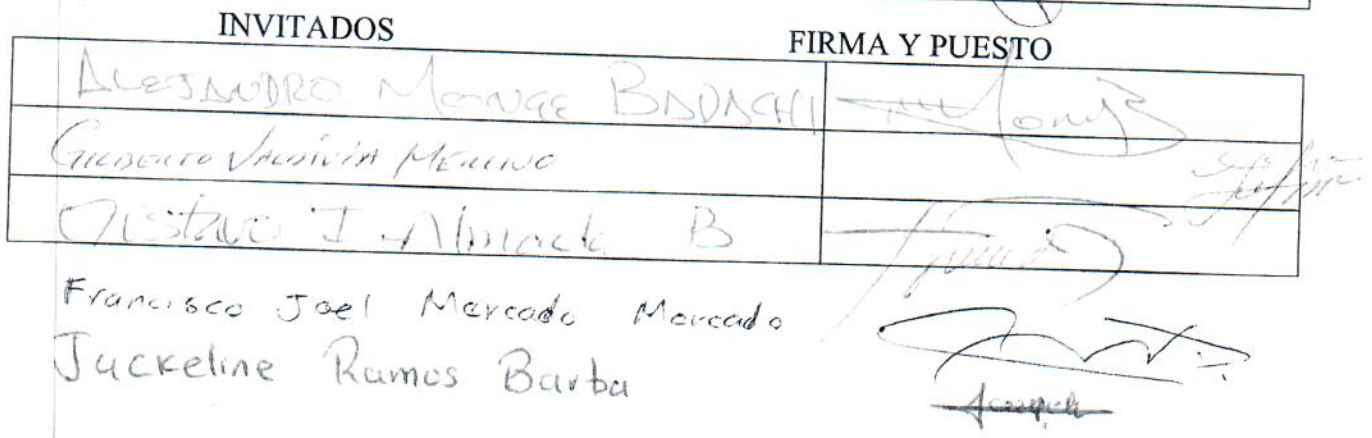 INVITADOS FIRMA Y PUESTO
ALEJANDRO MONGE
GILBERTO VALDIVIA MERINO
Gustavo I Almada B
Francisco Joel Mercado Mercado
Jackeline Ramos Barba